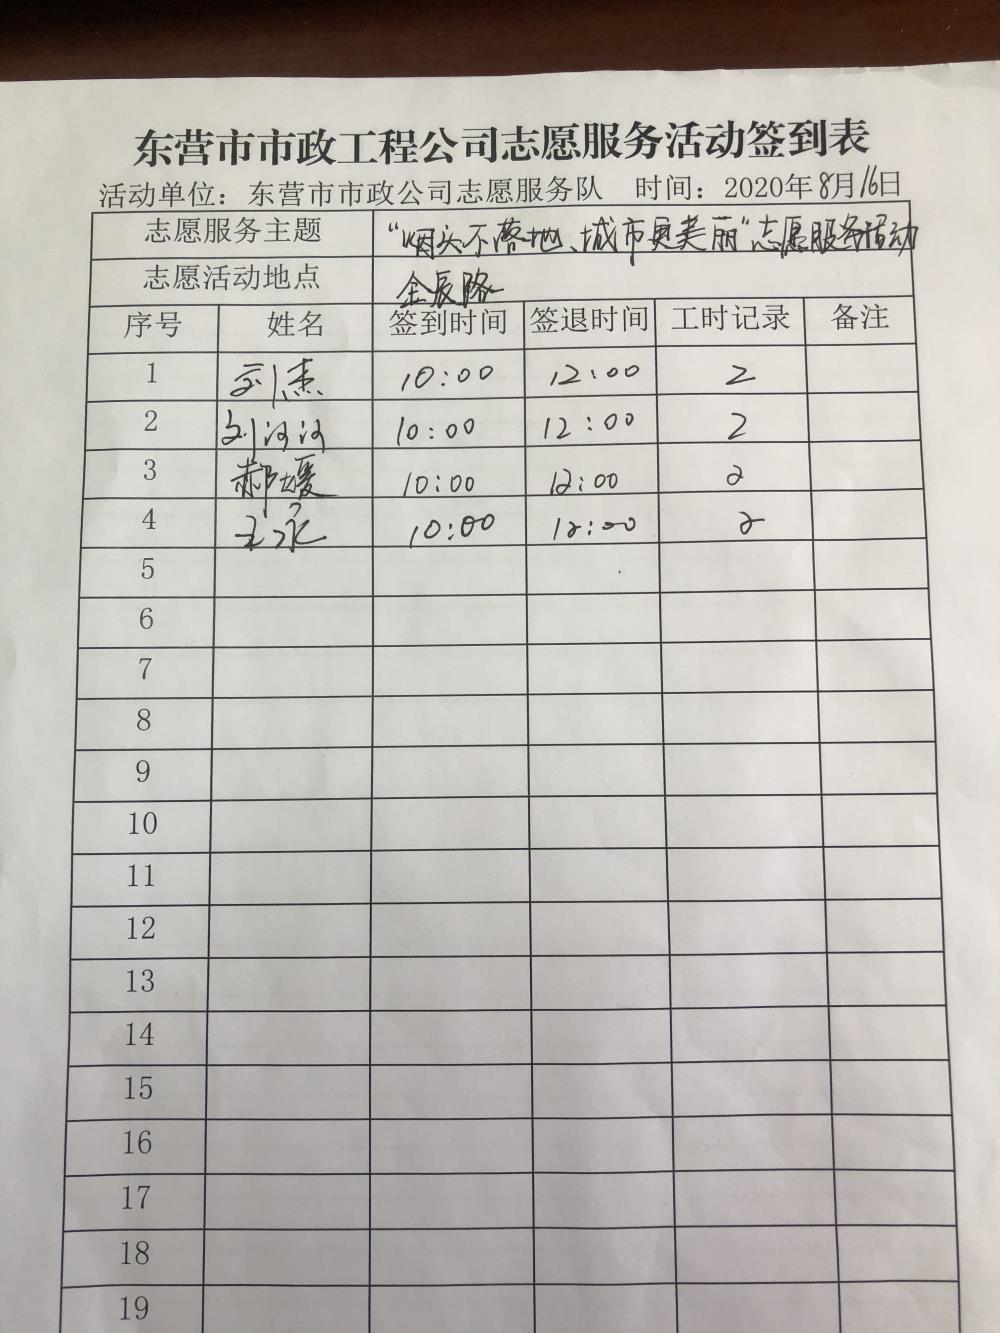 东营市市政工程公司志愿服务活动签到表
活动单位：东营市市政公司志愿服务队 时间：2020年8月16日
志愿服务主题 “烟头不落地、城市更美丽”志愿服务活动
志愿活动地点 金辰路
序号 姓名 签到时间 签退时间 工时记录 备注
1 刘杰 10:00 12:00 2
2 刘汉汉 10:00 12:00 2
3 郝媛 10:00 12:00 2
4 王永 10:00 12:00 2
5
6
7
8
9
10
11
12
13
14
15
16
17
18
19